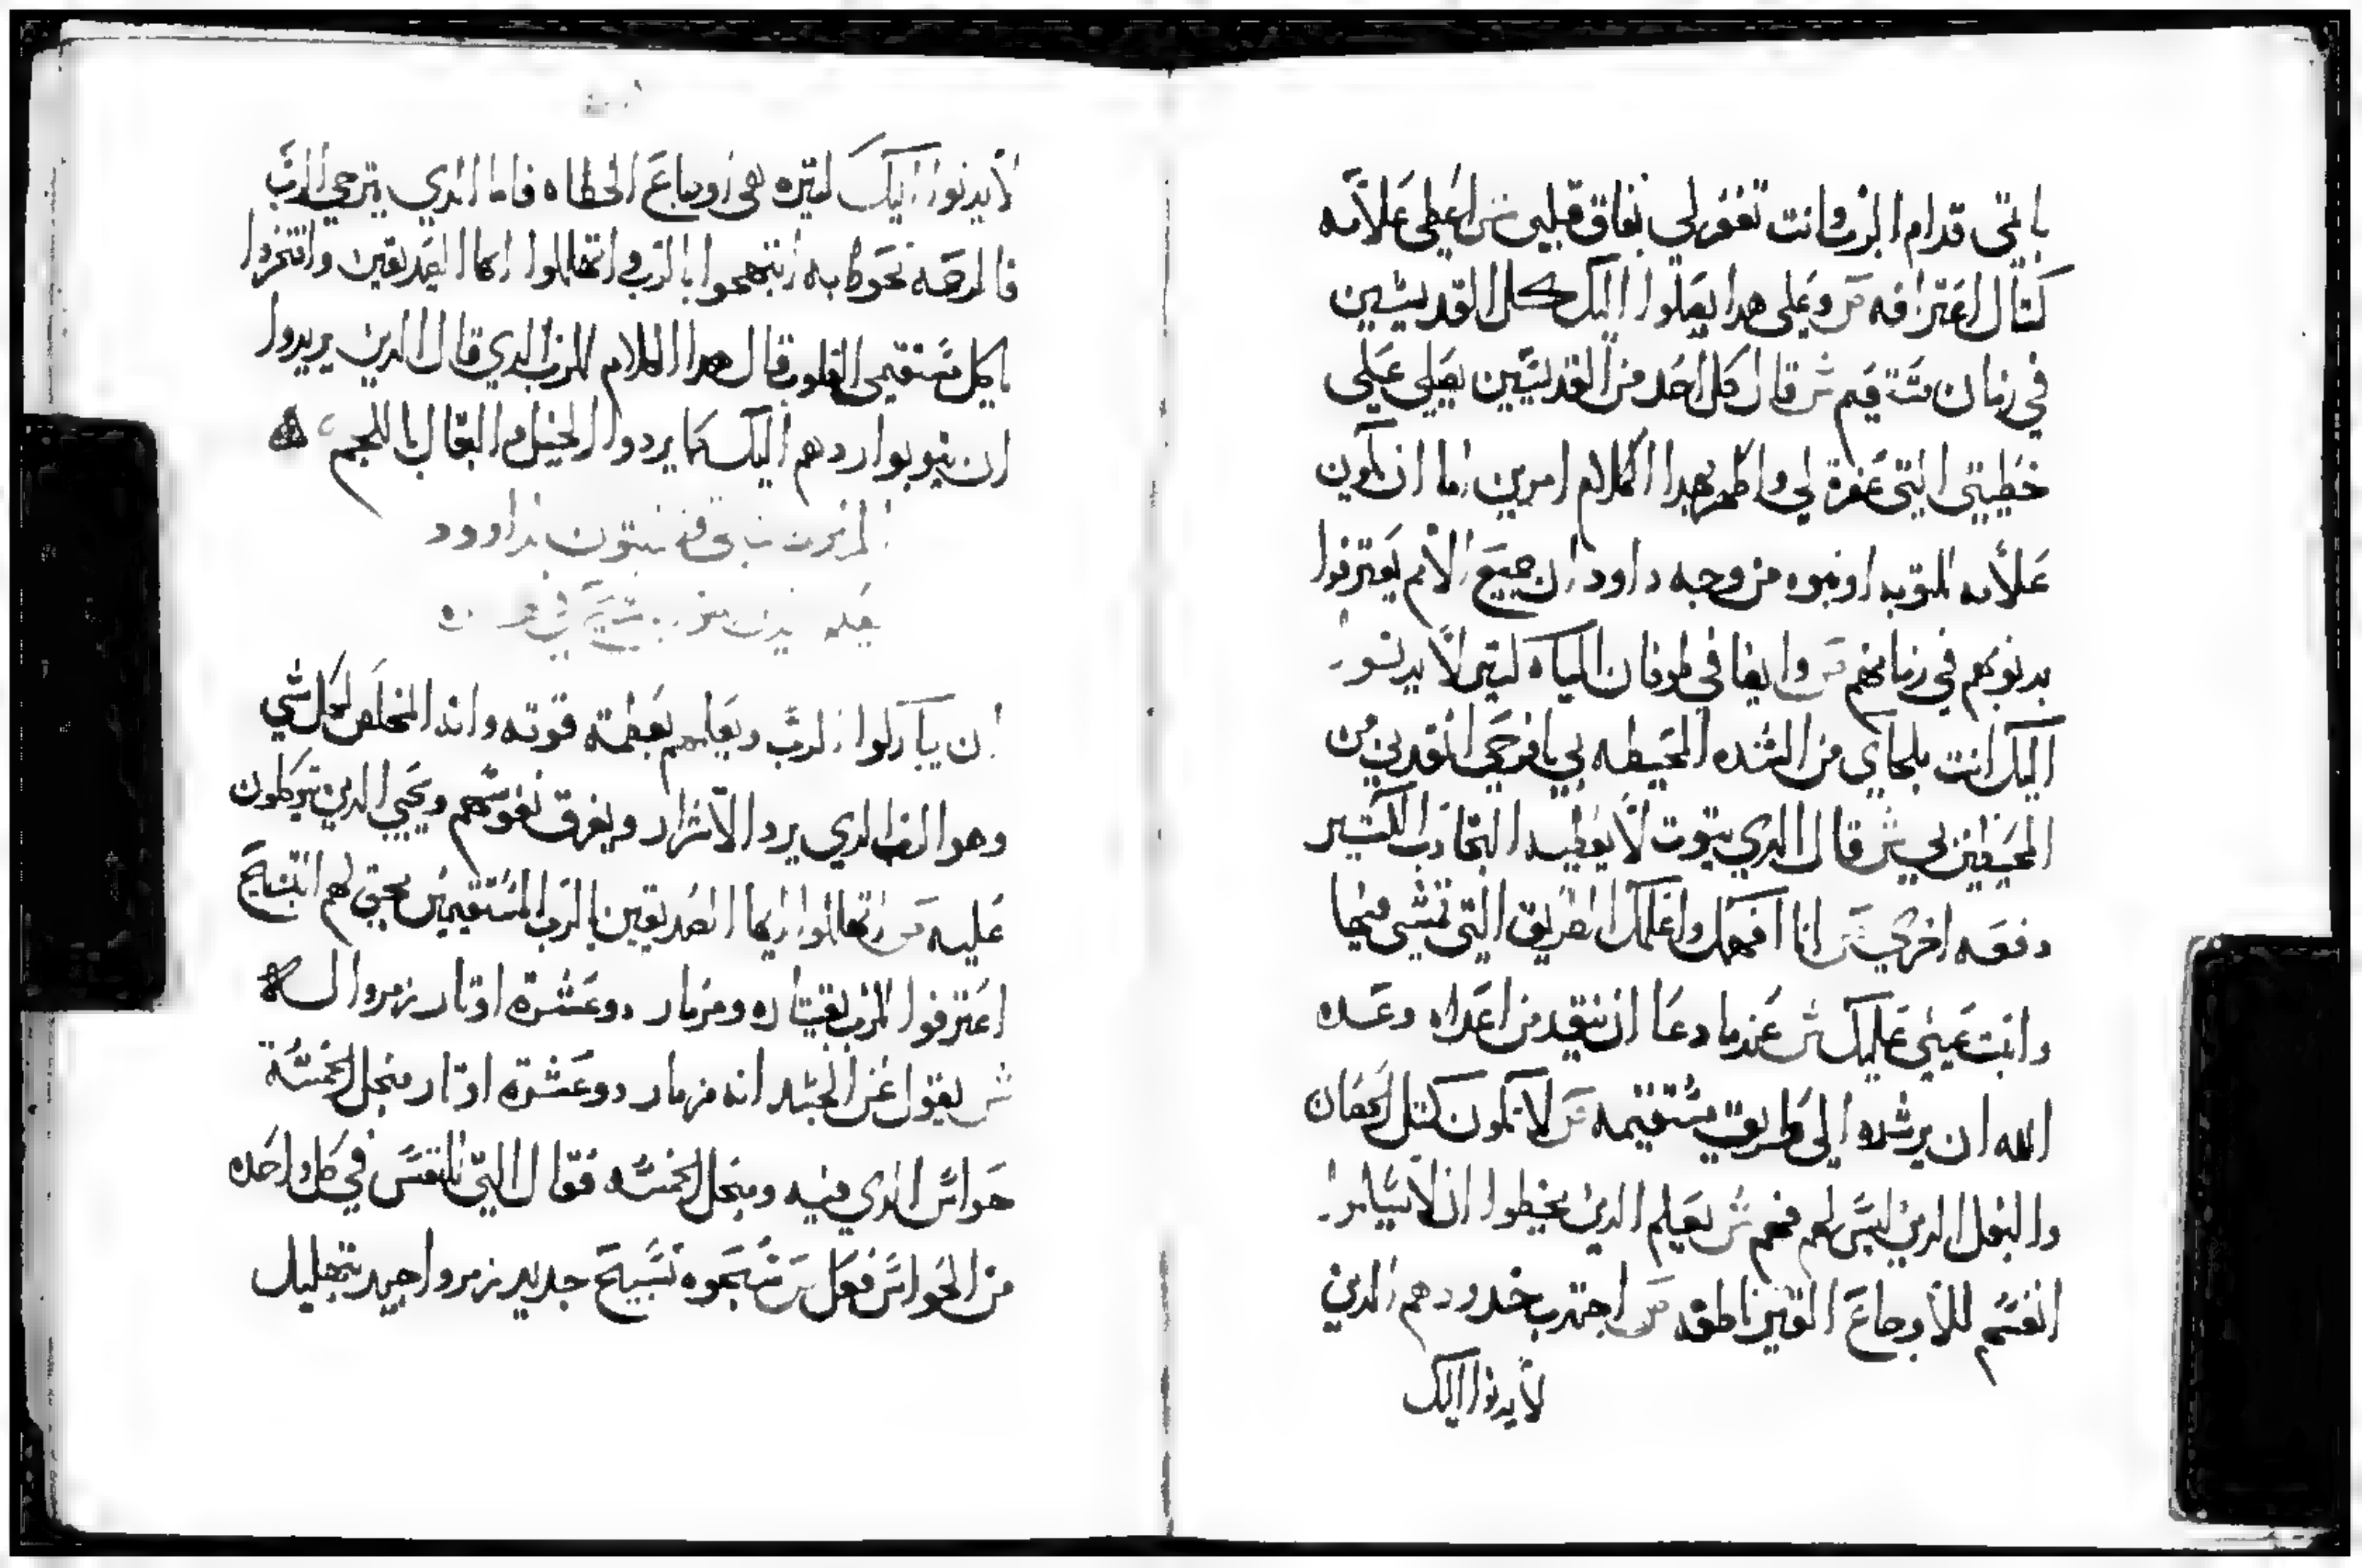 باتمي قدام الرب وانت تغفر لي نفاق قلبي ش اعطي علامه
كتال اعترافه مز وعلي هدا يصلوا اليك كل القديسين
في زمان مستقيم ش قال كل احد من القديسين يصلي علي
خطيتي التي غفرة لي واظهر بهدا الكلام امرين اما ان تكون
علامه التوبه او نبوه من وجه داود ان جميع الامم يعترفوا
بدنوبهم في زمانهم مز وايضا في طوفان المياه كتير لا يدنوا
اليك انت ملجاي من الشده المحيطه بي يا فرحي انقدني من
المحيطين بي ش قال الدي يتوب لا يعطيه التجارب الكتير
دفعه اخري مز انا افهمك واعلمك الطريق التي تمشي فيها
واتبت عيني عليك ش عندما دعا ان ينقد من اعداه وعده
الله ان يرشده الي طريق مستقيمه مز لا تكون كتل الحصان
والبغل الدين ليس لهم فهم ش يعلم الدين يخطوا ان لا يسلموا
انفسهم للاوجاع الغير ناطقه مز اجتدب خدودهم الدين
لا يدنوا اليك
لا يدنوا اليك كتيره هي اوجاع الخطاه فاما الدي يترجي الرب
فالرحمه تحوط به ابتهجوا بالرب واتهللوا ايها الصديقين وافتخروا
يا كل مستقيمي القلوب قال هدا الكلام للرب الدي قال الدين يريدوا
ان يتوبوا ردهم اليك كما يردوا الخيل والبغال باللجم
المزمور داوود
يعلم
ان يباركوا الرب ويعلمهم بعظمة قوته وانه المخلص لكل شي
وهو الدي يرد الاشرار ويغرق نفوسهم ويحيي الدين يتوكلون
عليه مز اتهللوا ايها الصديقين بالرب المستقيمين يحق لهم التسبيح
اعترفوا للرب بقيتاره ومزمار دو عشرة اوتار زمروا له
ش يقول عن الجسد انه مزمار دو عشرة اوتار من اجل الخمسة
حواس الدي فيه ومن اجل الخمسه فقال التي للنفس في كل واحده
من الحواس فعل مز سبحوه تسبيح جديد زمروا جيد بتهليل